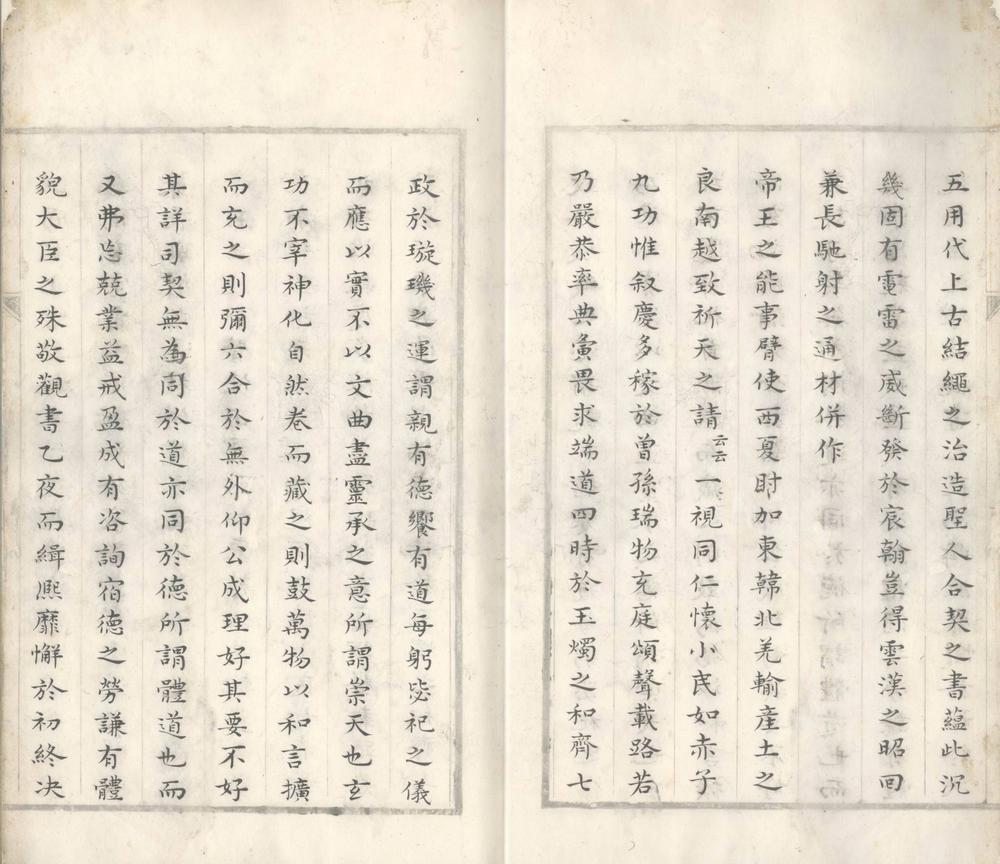 五用代上古結繩之治造聖人合契之書蘊此沉
幾固有電雷之威斷發於宸翰豈得雲漢之昭回
兼長馳射之通材併作
帝王之能事臂使西夏財加東韓北羌輸產土之
良南越致祈天之請云云一視同仁懷小民如赤子
九功惟叙慶多稼於曽孫瑞物充庭頌聲載路若
乃嚴恭率典夤畏求端道四時於玉燭之和齊七
政於璇璣之運謂親有德饗有道每躬毖祀之儀
而應以實不以文曲盡靈承之意所謂崇天也玄
功不宰神化自然卷而藏之則鼓萬物以和言擴
而充之則彌六合於無外仰公成理好其要不好
其詳司契無為同於道亦同於德所謂體道也而
又弗忘兢業益戒盈成有咨詢宿德之勞謙有體
貌大臣之殊敬觀書乙夜而緝熙靡懈於初終决